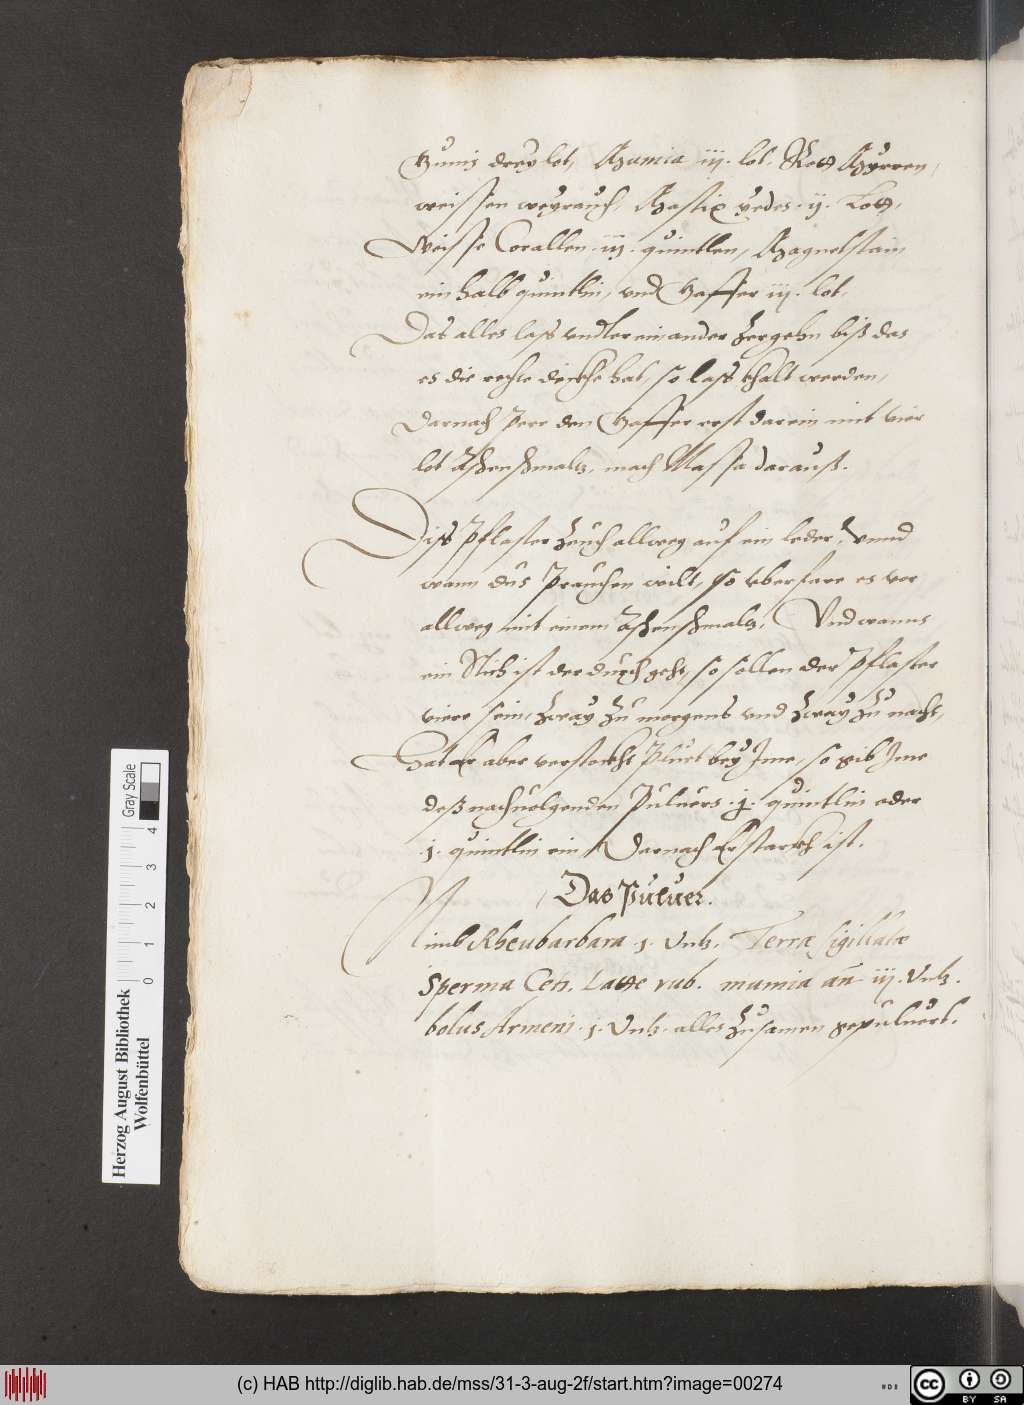 Gumis drey lot, Mumia iij. lot. Rott Myrren,
weissen weyrauch, Mastix yedes .ij. Lott.
Weisse Corallen .iij. quintlen, Magnetstain
ein halb quintlin, vnd Gaffer iij. lot.
Das alles lass vndter einander zergehn biß das
es die rechte dickhe hat, so lass khalt werden,
darnach den Gaffer erst darein mit vier
lot mach Massa darauß.
Diss Pflaster zeuch allweg auf ein leder, vnnd
wann dus prauchen wilt, so vberfare es vor
allweg mit einem Vnd wanns
ein Stich ist der durch geht, so sollen der Pflaster
viere sein, zway zu morgens vnd zway zu nacht,
Hat Er aber verstockht Pluet bey Jme, so gib Jme
deß nachuolgenden Puluers quintlin oder
.1. quintlin ein, Darnach Er starckh ist.
Das Puluer.
Nimb Rheubarbara .1. Vntz. Terræ sigillatæ
Sperma Ceti. Latte rub. mumia an iij. Vntz.
bolus Armeni .1. Vntz. alles zusamen gepuluert.
Herzog August Bibliothek
Wolfenbüttel
0 1 2 3 4
Gray Scale
(c) HAB http://diglib.hab.de/mss/31-3-aug-2f/start.htm?image=00274
cc BY SA